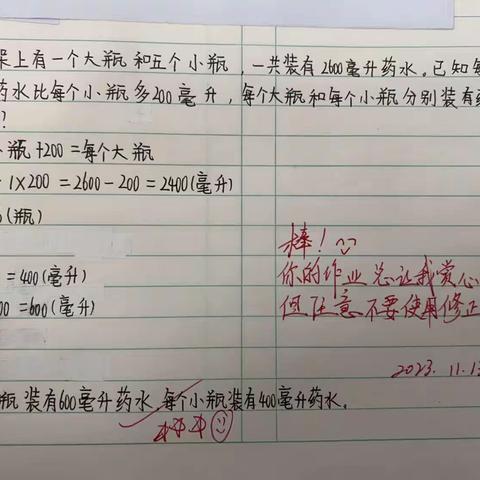 架上有一个大瓶和五个小瓶，一共装有2600毫升药水。已知每
药水比每个小瓶多200毫升，每个大瓶和每个小瓶分别装有
?
瓶+200=每个大瓶
1×200=2600-200=2400(毫升)
(瓶)
=400(毫升)
00=600(毫升)
瓶装有600毫升药水，每个小瓶装有400毫升药水。
棒！
你的作业总让我赏心
但注意不要使用修正
2023.11.13
棒棒